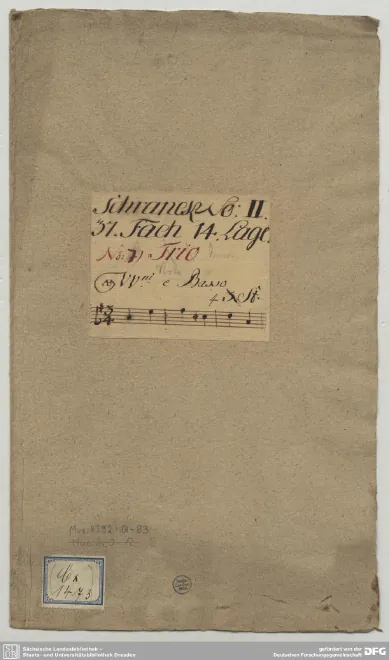 Schranck No: II.
37. Fach 14. Lage.
No: 7) Trio
VVni e Basso
4 St.
3
4
Mus. 2
1473
Sächsische Landesbibliothek –
Staats- und Universitätsbibliothek Dresden
gefördert von der
Deutschen Forschungsgemeinschaft
DFG